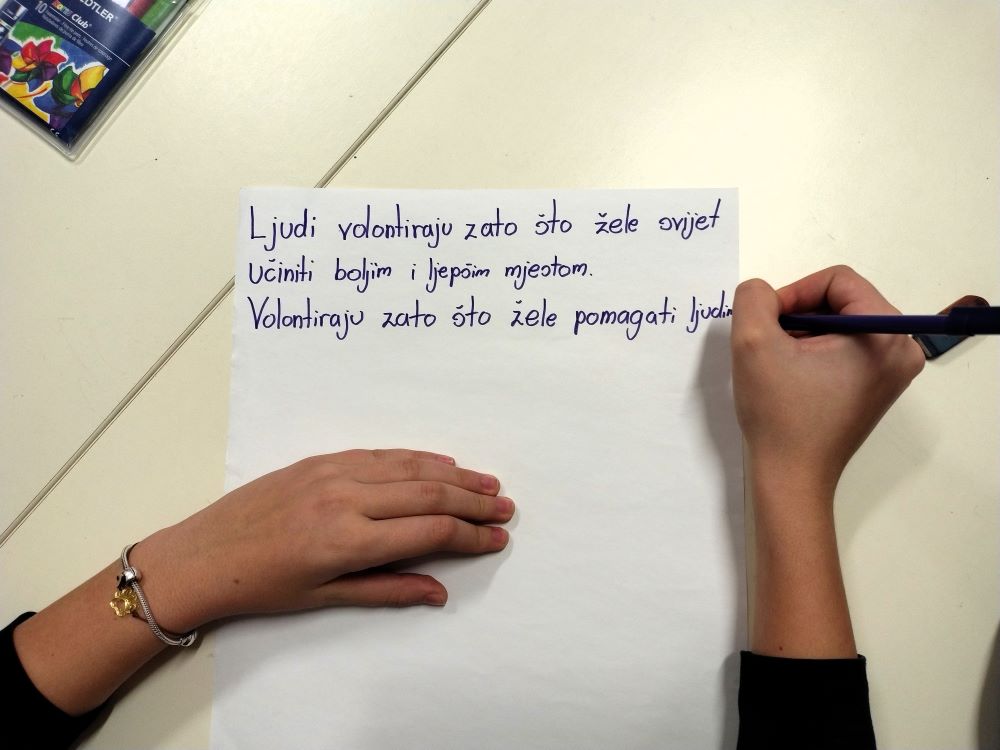 STAEDTLER
10
Club
Ljudi volontiraju zato što žele svijet
učiniti boljim i ljepšim mjestom.
Volontiraju zato što žele pomagati